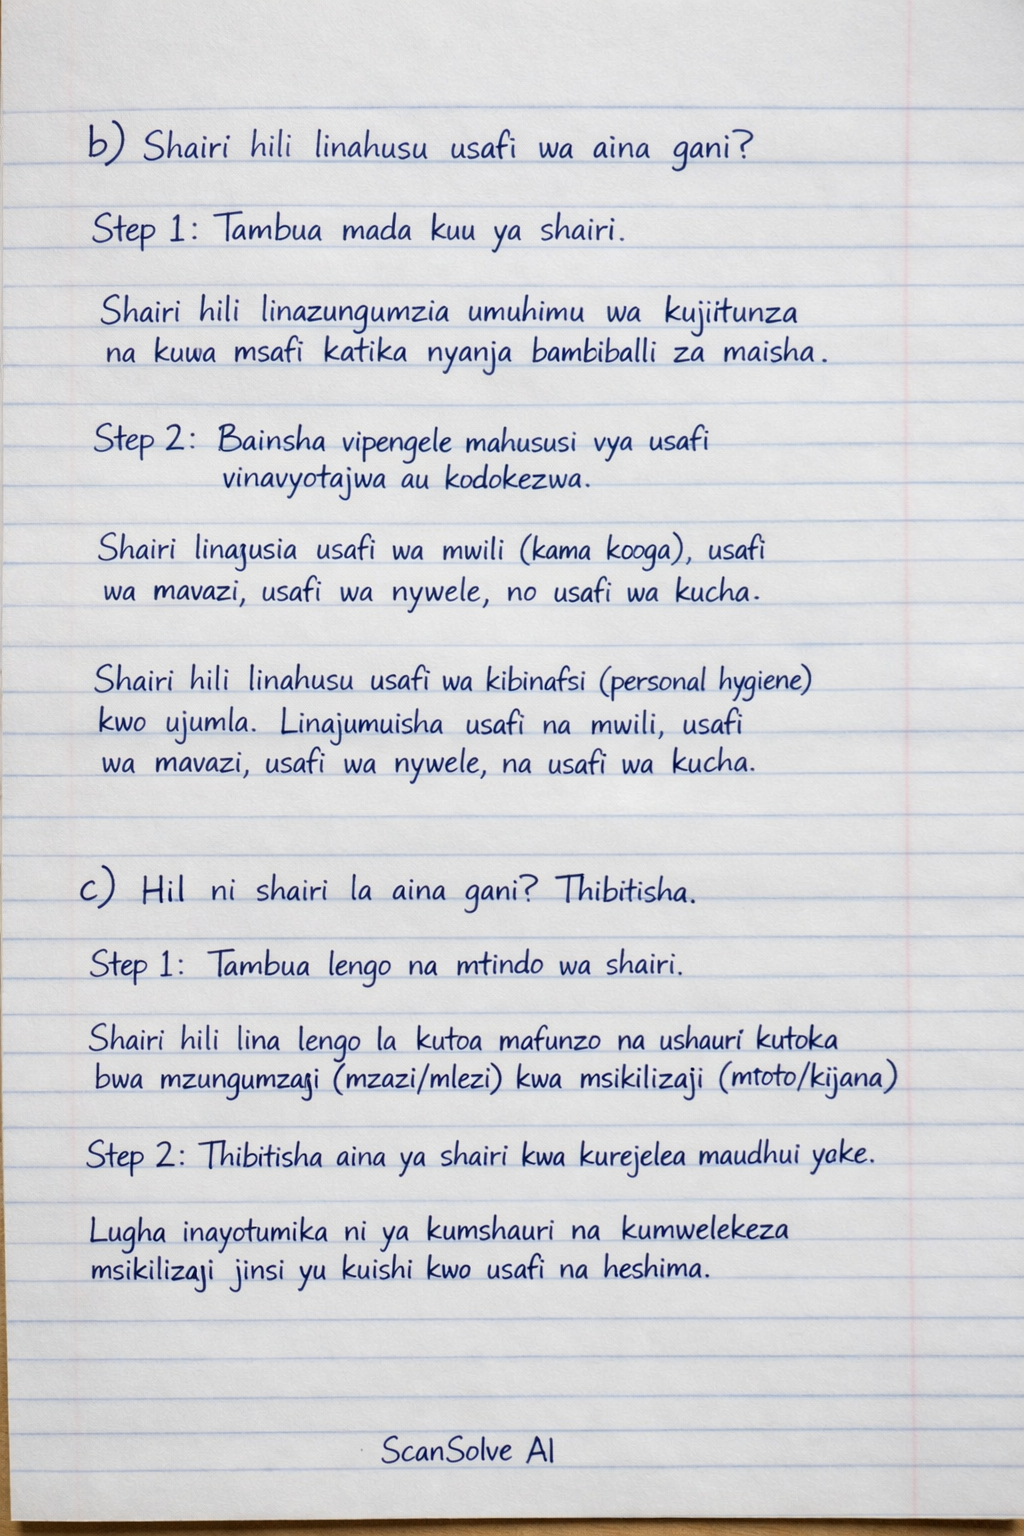 b) Shairi hili linahusu usafi wa aina gani?
Step 1: Tambua mada kuu ya shairi.
Shairi hili linazungumzia umuhimu wa kujiitunza
na kuwa msafi katika nyanja bambiballi za maisha.
Step 2: Bainsha vipengele mahususi vya usafi
vinavyotajwa au kodokezwa.
Shairi linagusia usafi wa mwili (kama kooga), usafi
wa mavazi, usafi wa nywele, no usafi wa kucha.
Shairi hili linahusu usafi wa kibinafsi (personal hygiene)
kwo ujumla. Linajumuisha usafi na mwili, usafi
wa mavazi, usafi wa nywele, na usafi wa kucha.
c) Hil ni shairi la aina gani? Thibitisha.
Step 1: Tambua lengo na mtindo wa shairi.
Shairi hili lina lengo la kutoa mafunzo na ushauri kutoka
bwa mzungumzaji (mzazi/mlezi) kwa msikilizaji (mtoto/kijana)
Step 2: Thibitisha aina ya shairi kwa kurejelea maudhui yake.
Lugha inayotumika ni ya kumshauri na kumwelekeza
msikilizaji jinsi yu kuishi kwo usafi na heshima.
ScanSolve AI